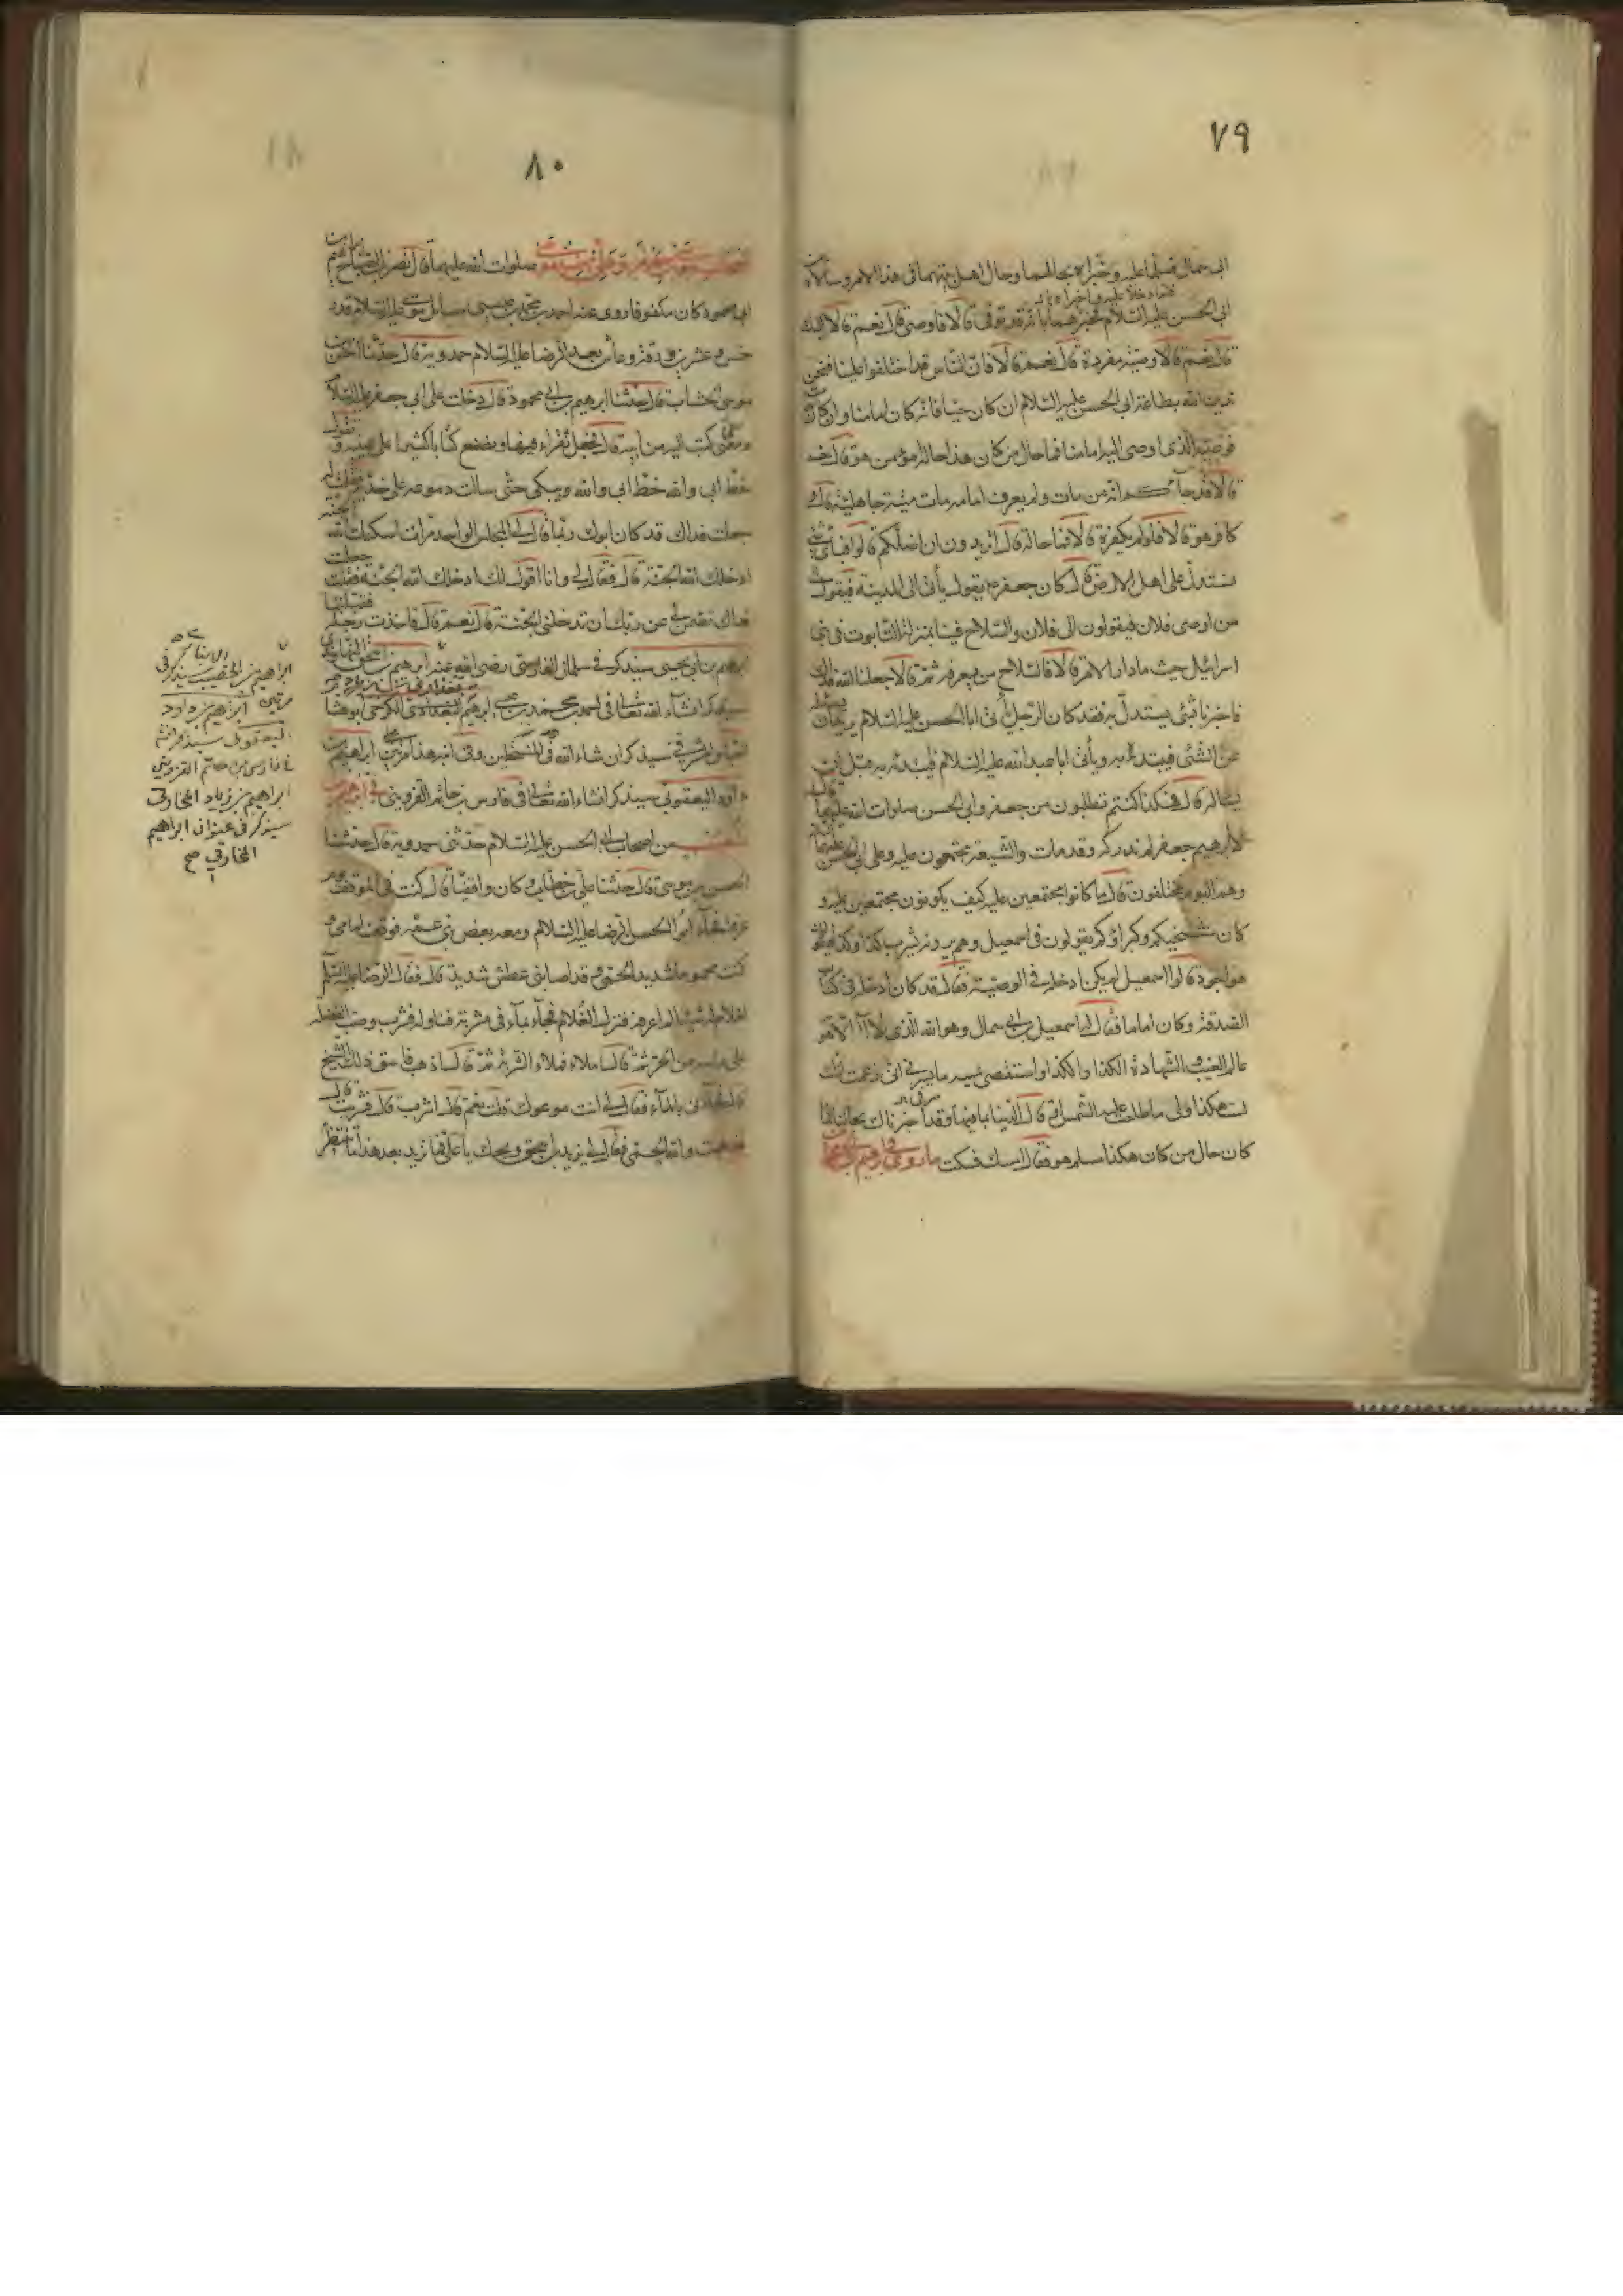 ٧٩
ابی سمال فسلما علیه وخبراه بحالهما وحال اهل بیتهما فی هذا الامر وسالاه عن
ابی الحسن علیه السلام فخبرهما بانه قد توفی قالا فاوصی قال نعم قالا الیک
قال نعم قالا وصیة مفردة قال نعم قالا فان الناس قد اختلفوا علینا فنحن
ندین الله بطاعة ابی الحسن علیه السلام ان کان حیا فانه کان امامنا وان کان مات
فوصیه الذی اوصی الیه امامنا فما حال من کان هذا حاله مؤمن هو قال نعم
قالا قد جاءکم انه من مات ولم یعرف امامه مات میتة جاهلیة قال
کافر هو قالا فلم لم یکفره قالا فما حاله قال اتریدون ان اضلکم قالوا فبای شیء
نستدل علی اهل الارض قال کان جعفر ع یقول یأتی الی المدینة فیقول
من اوصی فلان فیقولون الی فلان والسلاح فینا بمنزلة التابوت فی بنی
اسرائیل حیث ما دار دار الامر قالا فالسلاح من یعرفه ثم قالا جعلنا الله فداک
فاخبرنا بشیء یستدل به فقد کان الرجل یأتی ابا الحسن علیه السلام یرید ان یسئله
عن الشیء فیبتدئه به ویأتی ابا عبد الله علیه السلام فیبتدئه به قبل ان
یسأله قال فهکذا کنتم تطلبون من جعفر وابی الحسن صلوات الله علیهما قال
له ابرهیم جعفر لم ندرکه وقد مات والشیعة مجتمعون علیه وعلی ابی الحسن علیهما السلام
وهم الیوم مختلفون قال ما کانوا مجتمعین علیه کیف یکونون مجتمعین علیه و
کان مشیختکم وکبراؤکم یقولون فی اسمعیل وهم یرونه یشرب کذا وکذا فیقولون
هو اجود قالوا اسمعیل لم یکن ادخله فی الوصیة فقال قد کان ادخله فی کتاب
الصدقة وکان اماما فقال له اسمعیل بن ابی سمال وهو الله الذی لا اله الا هو
عالم الغیب والشهادة الکذا والکذا واستقصی یمینه ما یسرنی انی زعمت انک
لست هکذا ولی ما طلعت علیه الشمس او قال الدنیا بما فیها وقد اخبرناک بحالنا فما
کان حال من کان هکذا مسلم هو فقال امسک فسکت ما روی فی ابرهیم
٨٠
صلوات الله علیهما قال نصر بن الصباح ابرهیم بن
ابی محمود کان مکفوفا روی عنه احمد بن محمد بن عیسی مسائل موسی علیه السلام قدر
خمس وعشرین ورقة وعاش بعد الرضا علیه السلام حمدویه قال حدثنا الحسن بن
موسی الخشاب قال حدثنا ابرهیم بن ابی محمود قال دخلت علی ابی جعفر علیه السلام
ومعی کتب الیه من ابیه قال فجعل یقراء فیها ویضع کتابا کثیرا علی عینیه ویقول
خط ابی والله خط ابی والله ویبکی حتی سالت دموعه علی خدیه فقلت له
جعلت فداک قد کان ابوک ربما قال لی فی المجلس الواحد مرات اسکنک الله الجنة
ادخلک الله الجنة قال فقال لی وانا اقول لک ادخلک الله الجنة فقلت جعلت
فداک تضمن لی عن ربک ان تدخلنی الجنة قال نعم قال فاخذت رجله فقبلتها
ابرهیم بن ابی یحیی سیذکر فی سلمان الفارسی رضی الله عنه ابرهیم بن اسحق النهاوندی
سیذکر انشاء الله تعالی فی احمد بن محمد بن عیسی ابرهیم بغدادی الکرخی ابو هشا
سیذکر ان شاء الله فی وفی انه هذا ابراهیم بن
داود الیعقوبی سیذکر انشاء الله تعالی فی فارس بن حاتم القزوینی فی ابرهیم بن
شعیب من اصحاب ابی الحسن علیه السلام حدثنی حمدویه قال حدثنا
الحسن بن موسی قال حدثنا علی بن خطاب وکان واقفیا قال کنت فی الموقف یوم
عرفة فجاء ابو الحسن الرضا علیه السلام ومعه بعض بنی عمه فوقف امامی و
کنت محموما شدید الحمی وقد اصابنی عطش شدید قال فقال الرضا علیه السلام
لغلام له شیئا لم اعرفه فنزل الغلام فجاء بماء فی مشربة فناوله فشرب وصب الفضلة
علی راسه من الحر ثم قال املاء فملاء الشربة ثم قال اذهب فاسق ذلک الشیخ
قال فجاءنی بالماء فقال لی انت موعوک قلت نعم قال اشرب قال فشربت قال
فذهبت والله الحمی فقال لی یزید بن اسحق ویحک یا علی فما ترید بعد هذا ما تنتظر
ابراهیم بن الخطیب سیذکر فی
ابراهیم بن داود
الیعقوبی سیذکر انشا
فی فارس بن حاتم القزوینی
ابراهیم بن زیاد المخارقی
سیذکر فی عنوان ابراهیم
المخارقی صح